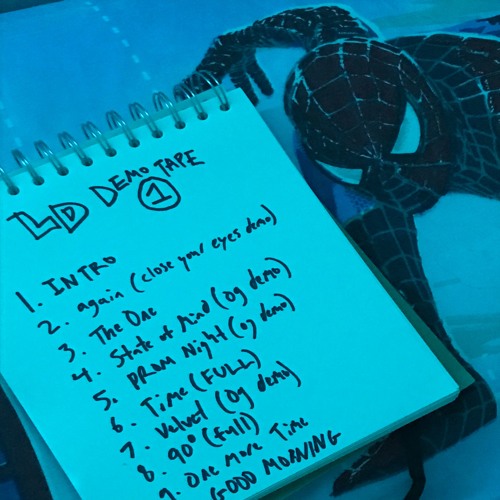 LD DEMO TAPE
1
1. INTRO
2. again (close your eyes demo)
3. The One
4. State of Mind (og demo)
5. PROM Night (og demo)
6. Time (FULL)
7. Velvet (Og demo)
8. 90° (full)
9. One More Time
GOOD MORNING